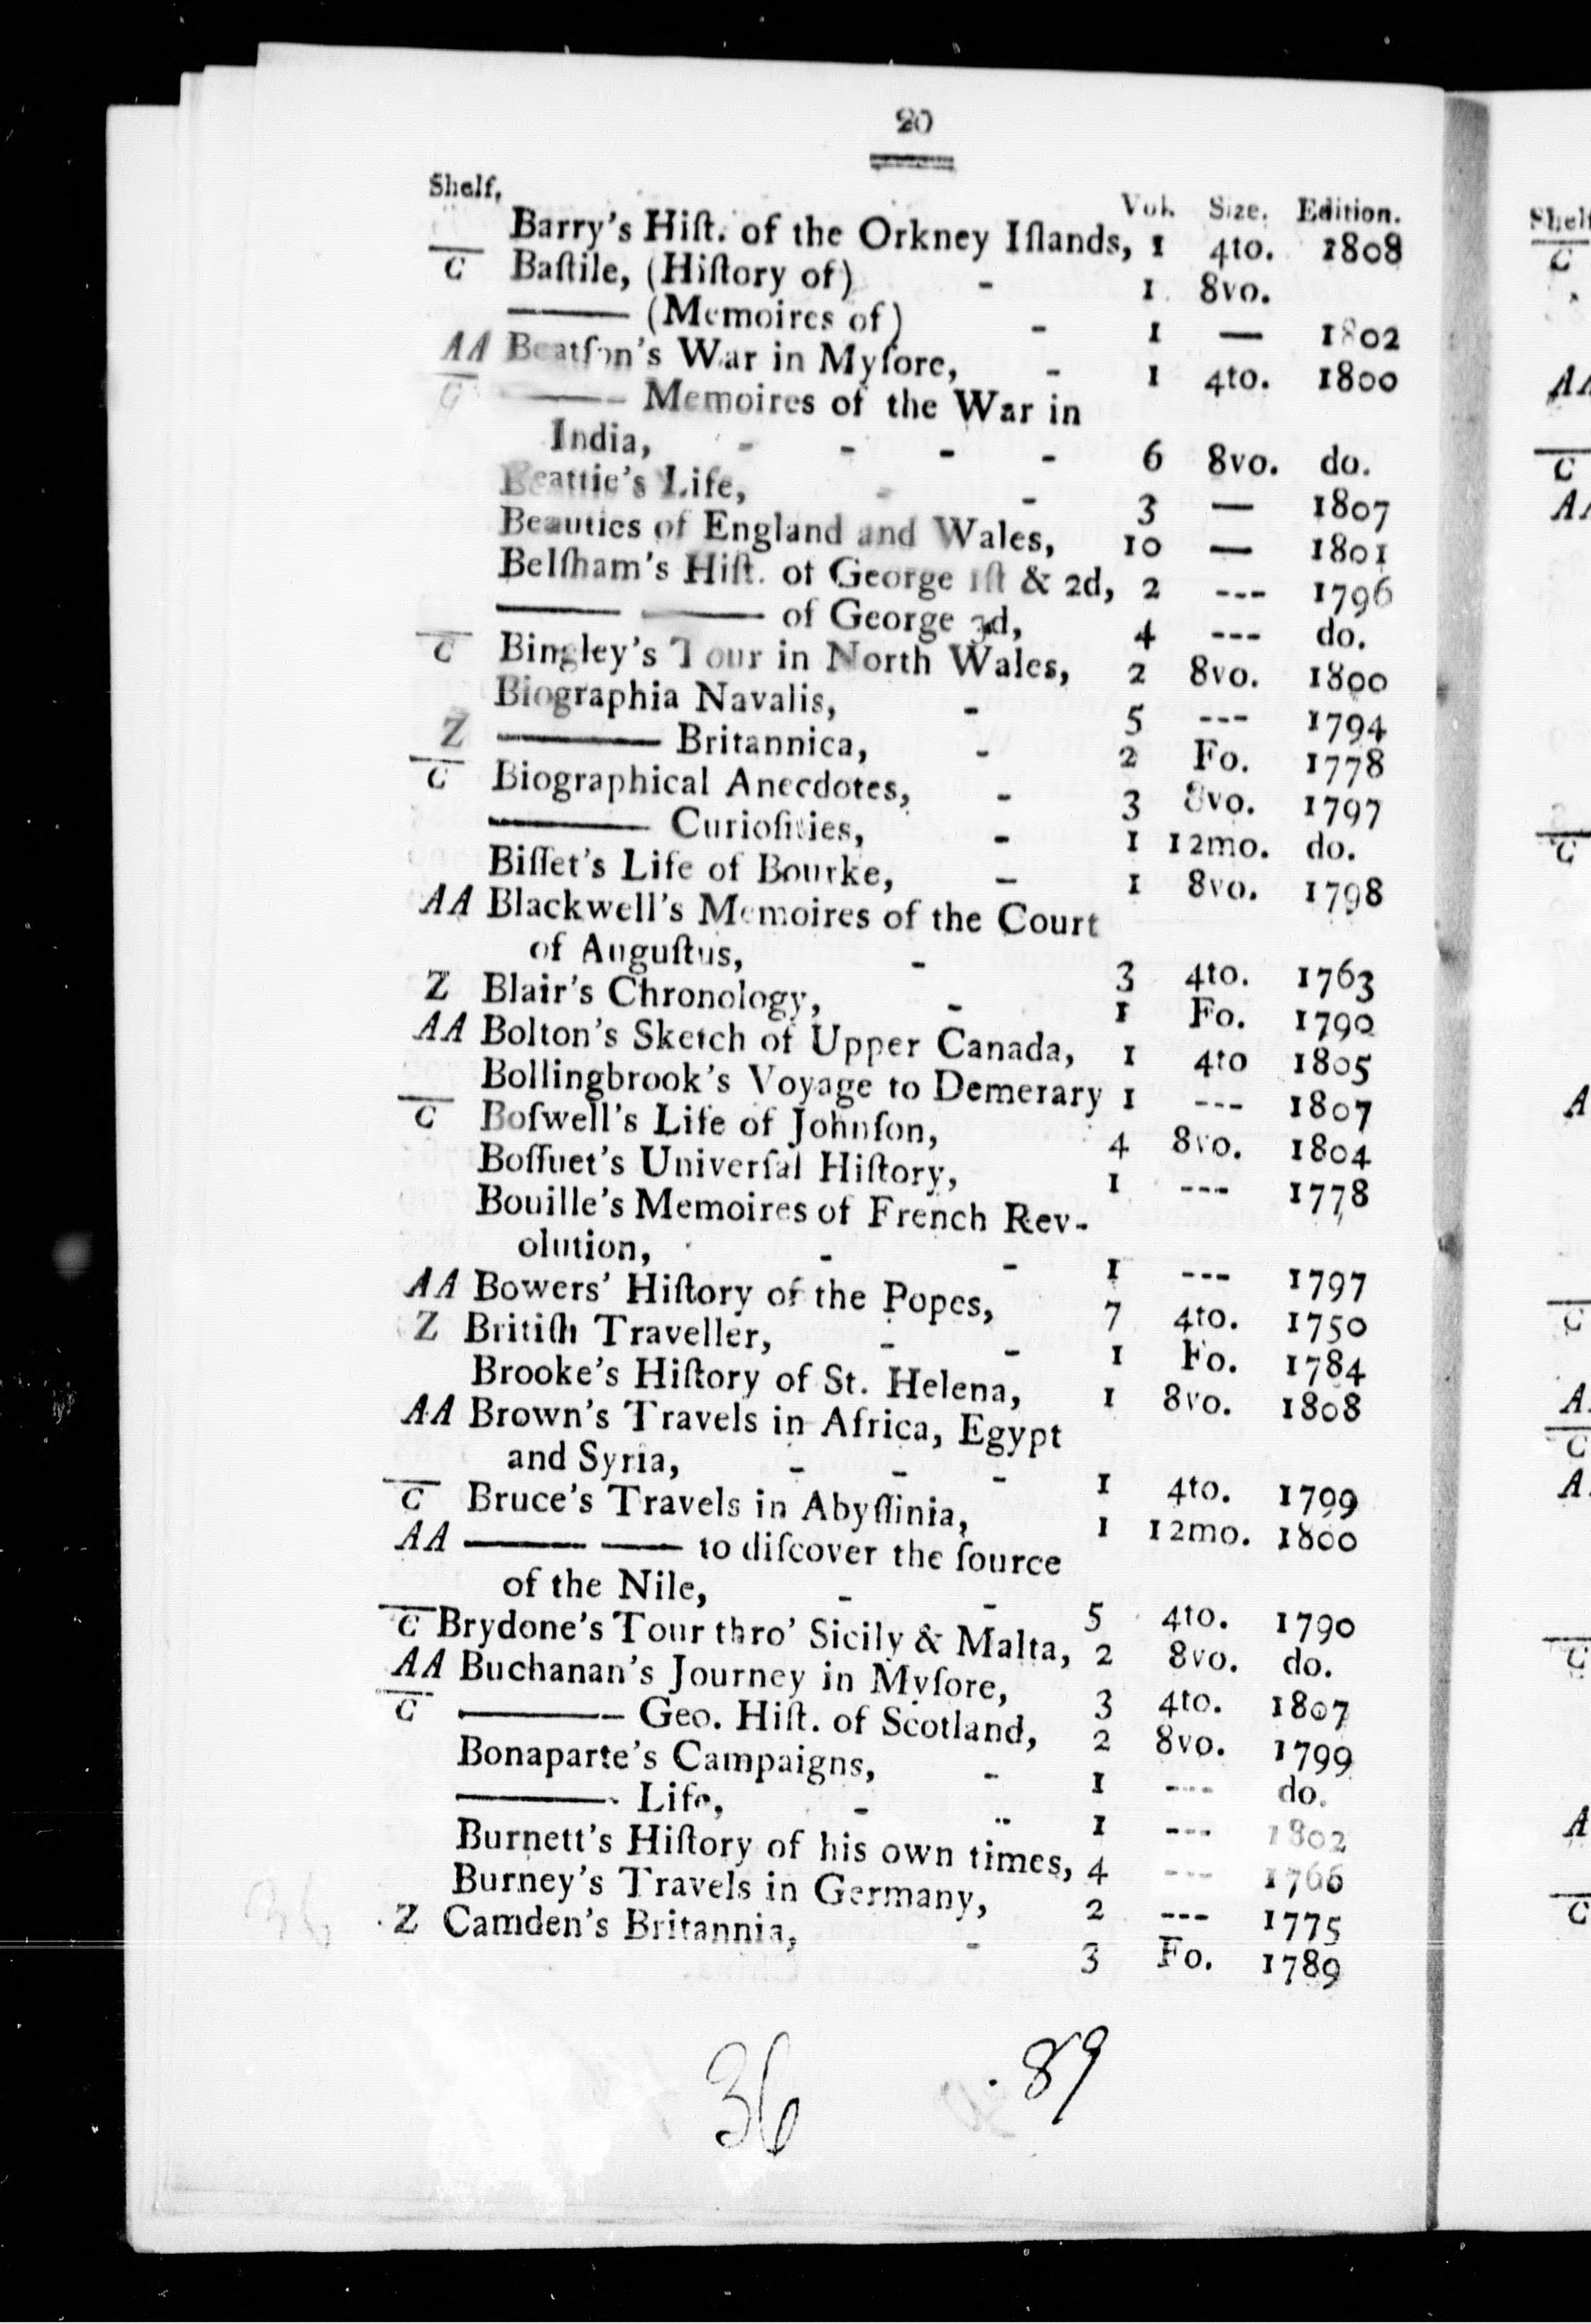 20
Shelf, Vol. Size. Edition.
Barry's Hiſt. of the Orkney Iſlands, 1 4to. 1808
C Baſtile, (Hiſtory of) - 1 8vo.
——— (Memoires of) - 1 — 1802
AA Beatſon's War in Myſore, - 1 4to. 1800
C ——— Memoires of the War in
India, - - - - 6 8vo. do.
Beattie's Life, - - 3 — 1807
Beauties of England and Wales, 10 — 1801
Belſham's Hiſt. of George 1ſt & 2d, 2 --- 1796
——— ——— of George 3d, 4 --- do.
C Bingley's Tour in North Wales, 2 8vo. 1800
Biographia Navalis, - 5 --- 1794
Z ——— Britannica, - 2 Fo. 1778
C Biographical Anecdotes, - 3 8vo. 1797
——— Curioſities, - 1 12mo. do.
Biſſet's Life of Bourke, - 1 8vo. 1798
AA Blackwell's Memoires of the Court
of Auguſtus, - 3 4to. 1763
Z Blair's Chronology, - 1 Fo. 1790
AA Bolton's Sketch of Upper Canada, 1 4to 1805
Bollingbrook's Voyage to Demerary 1 --- 1807
C Boſwell's Life of Johnſon, 4 8vo. 1804
Boſſuet's Univerſal Hiſtory, 1 --- 1778
Bouille's Memoires of French Rev-
olution, - - 1 --- 1797
AA Bowers' Hiſtory of the Popes, 7 4to. 1750
Z Britiſh Traveller, - - 1 Fo. 1784
Brooke's Hiſtory of St. Helena, 1 8vo. 1808
AA Brown's Travels in Africa, Egypt
and Syria, - - - 1 4to. 1799
C Bruce's Travels in Abyſſinia, 1 12mo. 1800
AA ——— —— to diſcover the ſource
of the Nile, - - 5 4to. 1790
C Brydone's Tour thro' Sicily & Malta, 2 8vo. do.
AA Buchanan's Journey in Myſore, 3 4to. 1807
C ——— Geo. Hiſt. of Scotland, 2 8vo. 1799
Bonaparte's Campaigns, - 1 --- do.
——— Life, - - 1 --- 1802
Burnett's Hiſtory of his own times, 4 --- 1766
Burney's Travels in Germany, 2 --- 1775
Z Camden's Britannia, - 3 Fo. 1789
36 89
Shelf
C
AA
C
AA
C
A
C
A
C
A
C
A
C